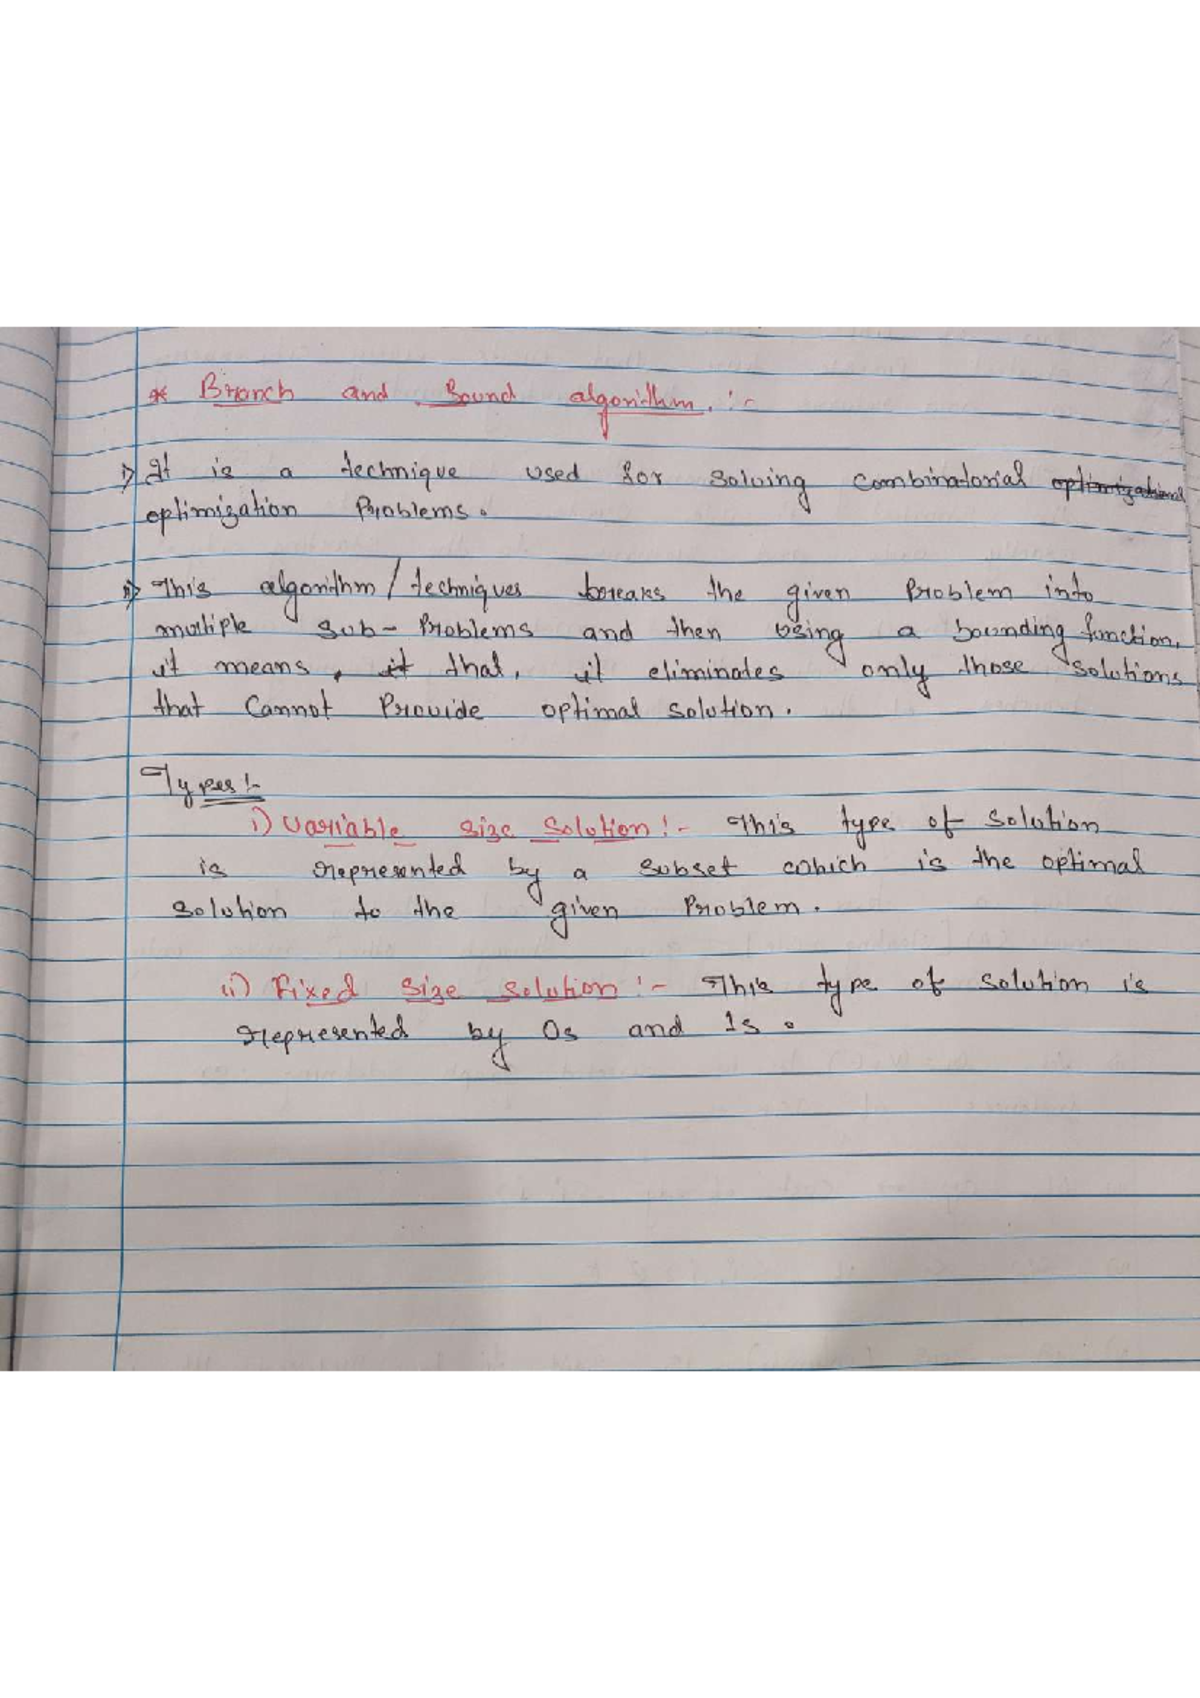 * Branch and Bound algorithm. :-
i) It is a technique used for solving combinatorial optimizational
optimization Problems.
ii) This algorithm / techniques breaks the given Problem into
multiple sub-Problems and then using a bounding function,
it means, it that, it eliminates only those solutions
that Cannot Provide optimal solution.
Types :-
i) Variable size solution :- This type of solution
is represented by a subset which is the optimal
solution to the given Problem.
ii) Fixed size solution :- This type of solution is
represented by 0s and 1s.